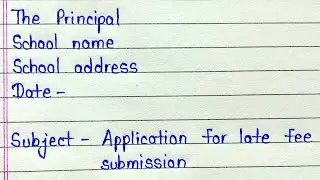 The Principal
School name
School address
Date -
Subject - Application for late fee
submission